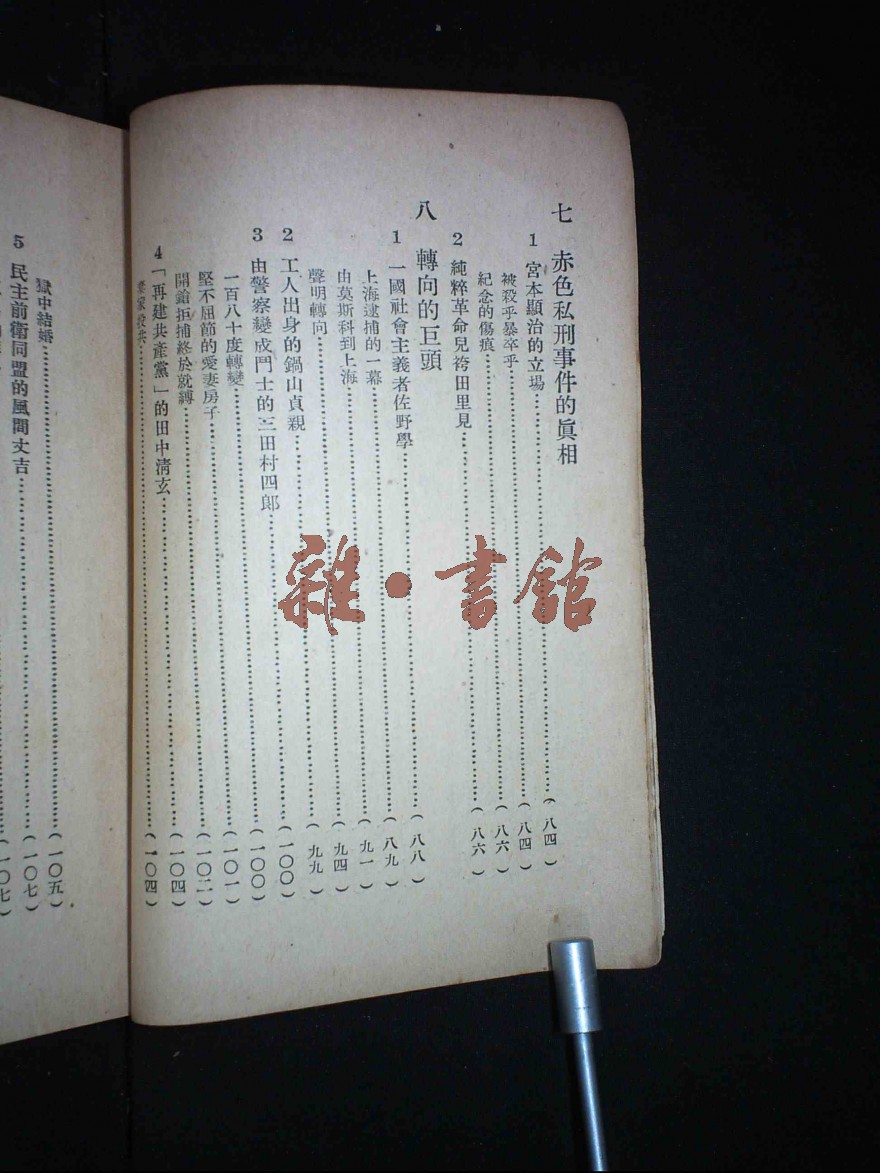 七 赤色私刑事件的眞相
1 宮本顯治的立場……（八四）
被殺乎暴卒乎……（八四）
紀念的傷痕……（八六）
2 純粹革命兒袴田里見……（八六）
八 轉向的巨頭
1 一國社會主義者佐野學……（八八）
上海逮捕的一幕……（八九）
由莫斯科到上海……（九一）
聲明轉向……（九四）
2 工人出身的鍋山貞親……（九九）
3 由警察變成鬥士的三田村四郎……（一〇〇）
一百八十度轉變……（一〇〇）
堅不屈節的愛妻房子……（一〇一）
開鎗拒捕終於就縛……（一〇二）
4 「再建共產黨」的田中淸玄……（一〇四）
家投共……（一〇四）
獄中結婚……（一〇五）
5 民主前衛同盟的風間丈吉……（一〇七）
（一〇七）
雜·書館